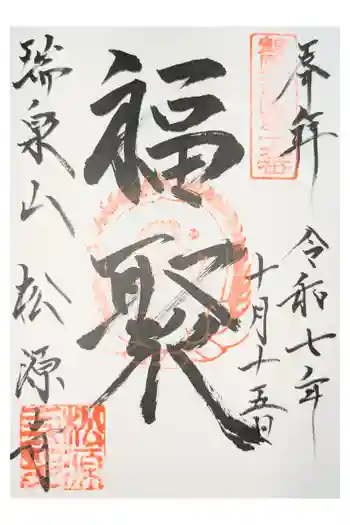 奉拝
令和七年
十月十五日
福聚
瑞泉山 松源寺